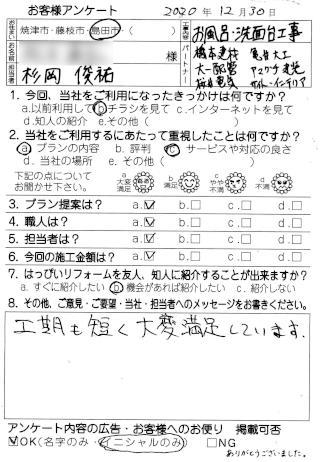 お客様アンケート 2020年12月30日
お住まい 焼津市・藤枝市・島田市・( )
工事内容 お風呂・洗面台工事
お名前 様
担当者 杉岡 俊祐
パートナー 橋本建材 亀谷大工
大一配管 ヤスタケ建発
桜井電気 サトーインテリア
1. 今回、当社をご利用になったきっかけは何ですか?
a.以前利用して b.チラシを見て c.インターネットを見て
d.知人の紹介 e.その他 ( )
2. 当社をご利用するにあたって重視したことは何ですか?
a.プランの内容 b. 評判 c. サービスや対応の良さ
d. 当社の場所 e. その他 ( )
下記の点について
お聞かせ下さい。
a 大変満足 b 満足 c やや不満 d 不満
3. プラン提案は? a. b. c. d.
4. 職人は? a. b. c. d.
5. 担当者は? a. b. c. d.
6. 今回の施工金額は? a. b. c. d.
7. はっぴいリフォームを友人、知人に紹介することが出来ますか?
a. すぐに紹介したい b. 機会があれば紹介したい c. 紹介しない
8. その他、ご意見・ご要望・当社・担当者へのメッセージをお書きください。
工期も短く大変満足しています。
アンケート内容の広告・お客様へのお便り 掲載可否
OK(名字のみ・イニシャルのみ) NG
ありがとうございました。